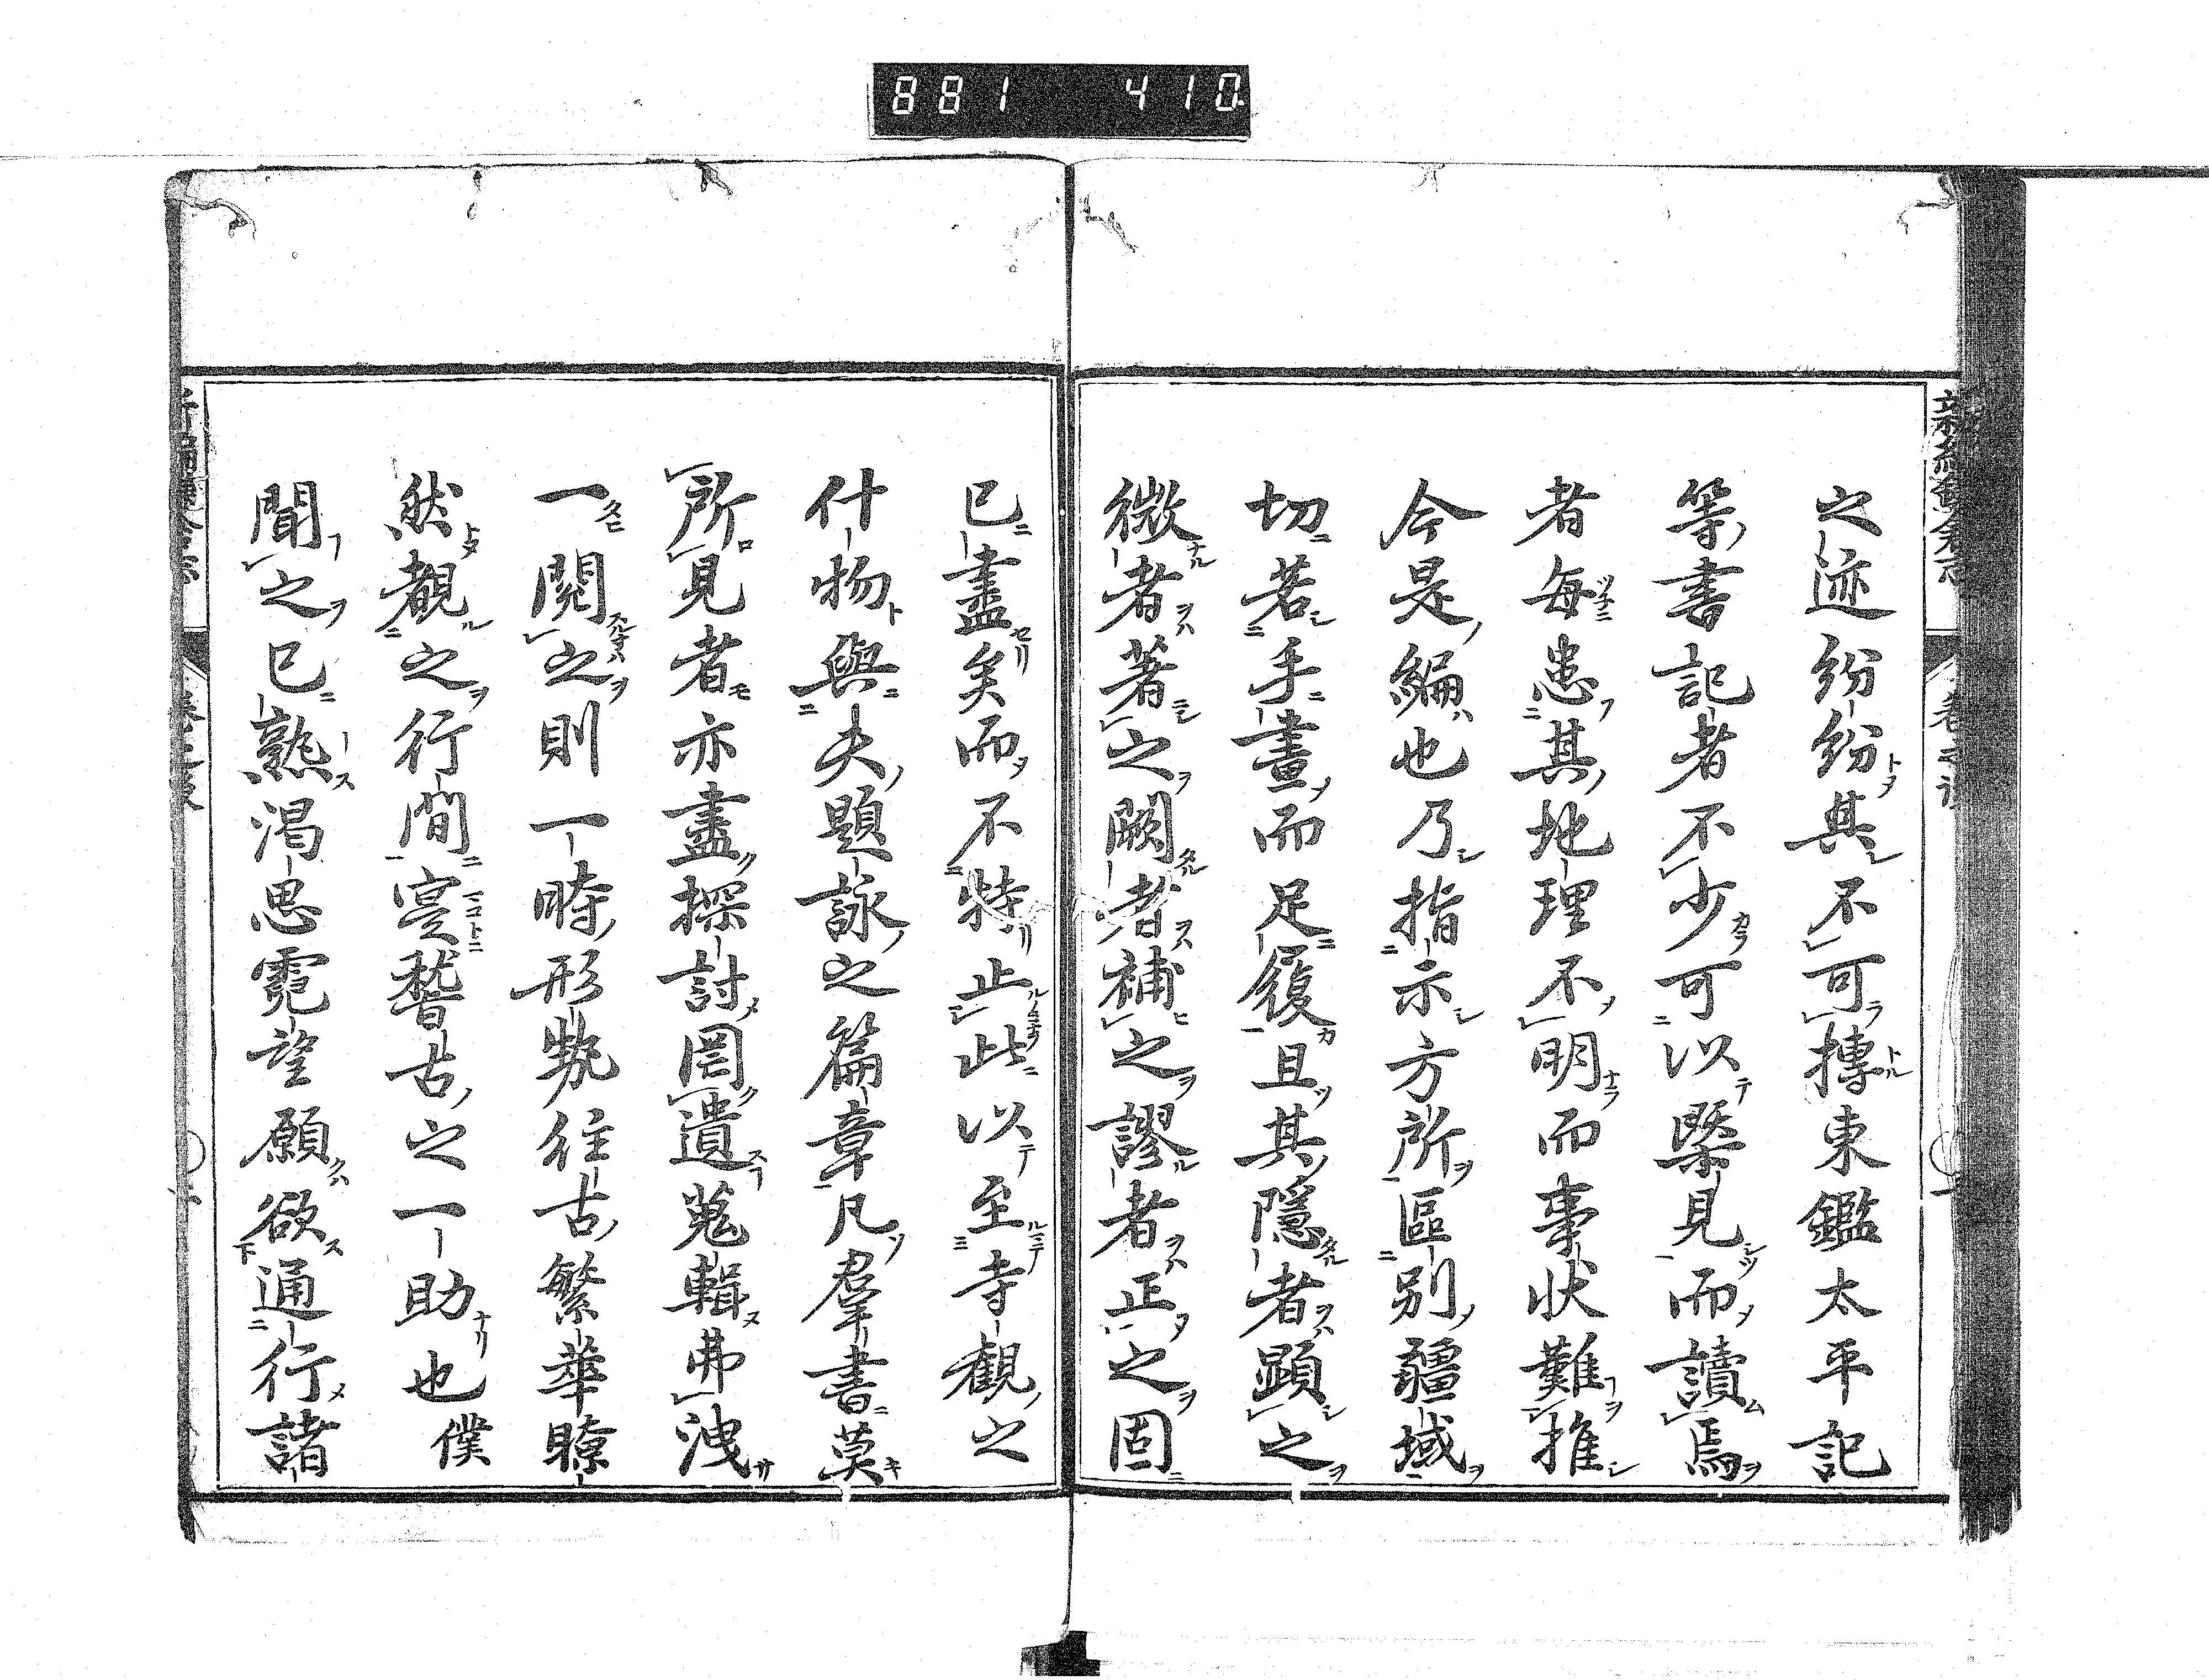 881 410
之迹紛紛其不可摶東鑑太平記
等書記者不少可以槩見而讀焉
者每患其地理不明而事狀難推
今是編也乃指示方所區別疆域
切若手畫而足履且其隱者顕之
微者著之闕者補之謬者正之固
已盡矣而不特止此以至寺觀之
什物與夫題詠之篇章凡羣書莫
所見者亦盡探討罔遺蒐輯弗洩
一閱之則一時形勢往古繁華瞭
然覩之行間寔稽古之一助也僕
聞之已熟渇思霓望願欲通行諸